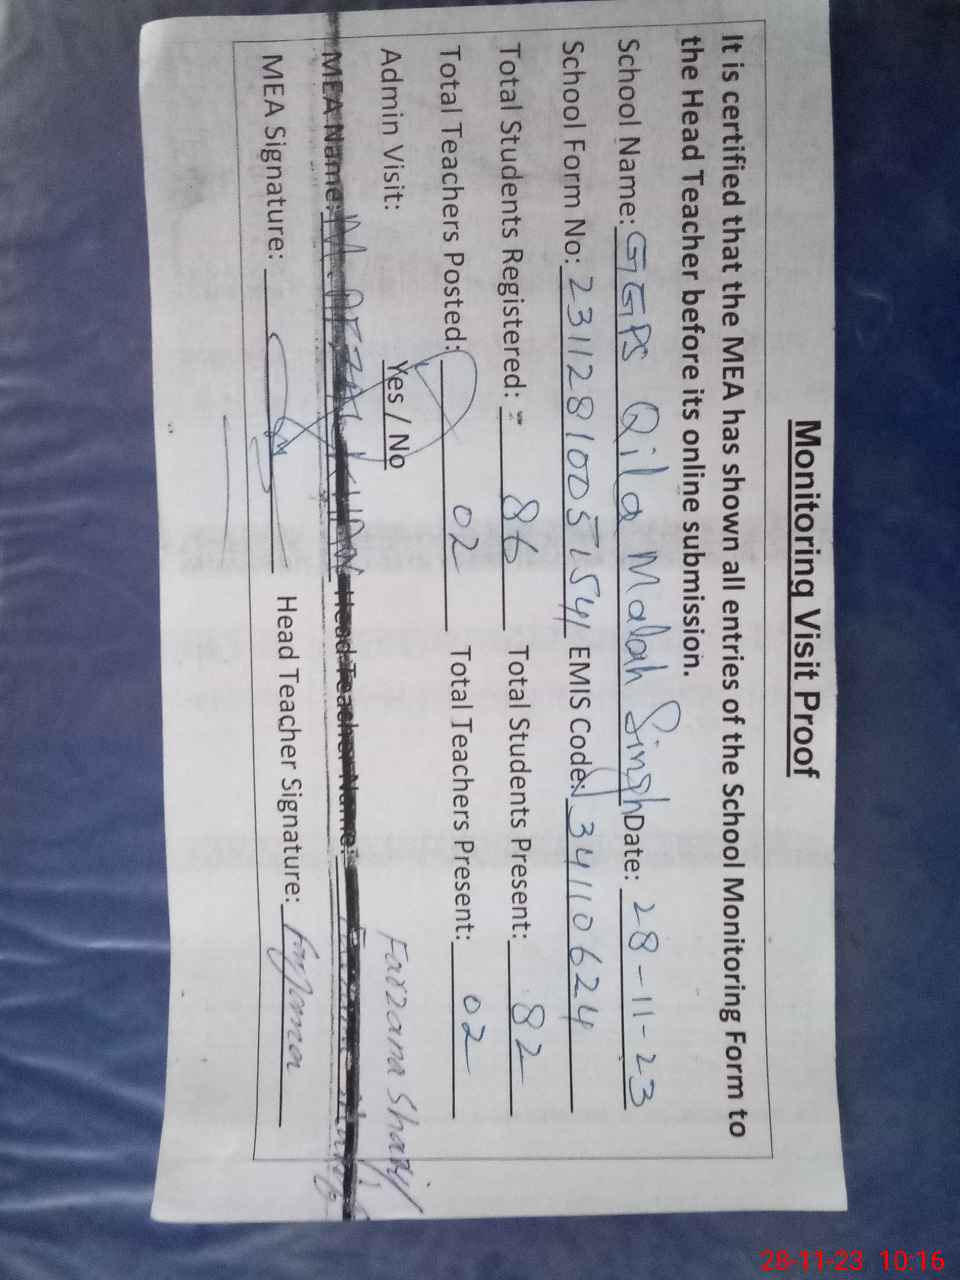 Monitoring Visit Proof
It is certified that the MEA has shown all entries of the School Monitoring Form to
the Head Teacher before its online submission.
School Name: GGPS Qila Malah Singh Date: 28-11-23
School Form No: 231128100515541 EMIS Code: 34110624
Total Students Registered: 86 Total Students Present: 82
Total Teachers Posted: 02 Total Teachers Present: 02
Admin Visit: Yes / No Farzana Sharif
MEA Name: M. AFZAL KHAN Head Teacher Name:
MEA Signature: Head Teacher Signature:
28-11-23 10:16